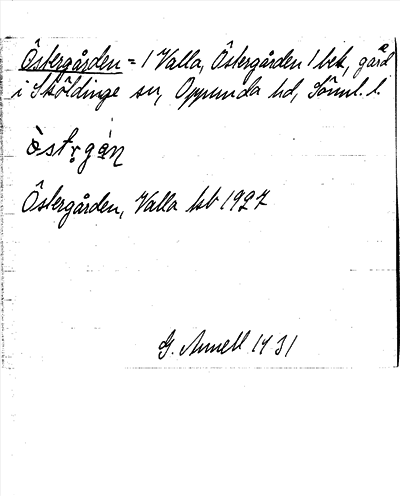 Östergården = 1 Valla, Östergården 1 bet, gård
i Sköldinge sn, Oppunda hd, Söml. l.
òstr̥gán̥
Östergården, Valla hb 1927
G. Annell 1931